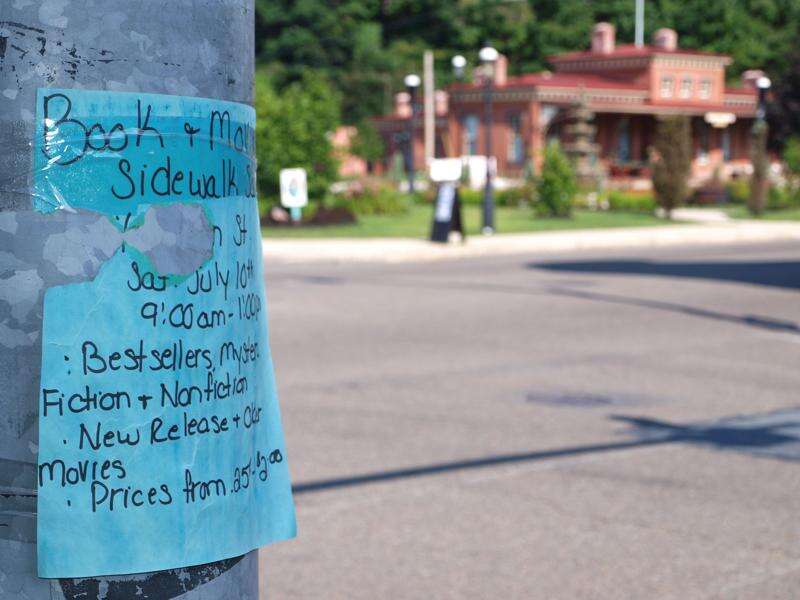 Book + Mov
Sidewalk Sa
n St.
Sat. July 10th
9:00am - 1:00p
· Bestsellers, Myster
Fiction + Nonfiction
· New Release + Older
Movies
· Prices from .25 - $2.00